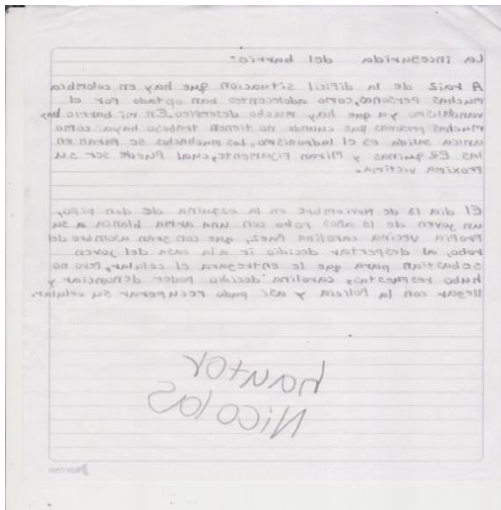 La inceguridad del barrio.
A raiz de la dificil situacion que hay en colombia
muchas Personas, como adolecentes han optado por el
vandalismo ya que hay mucho desempleo. En mi barrio hay
muchas personas que cuando no tienen trabajo hayan como
unica salida es el ladronismo, los muchachos se paran en
las esquinas y miran fijamente, cual Puede ser su
Proxima victima.
El dia 13 de Noviembre en la esquina de don pepo,
un joven de 18 años robo con una arma blanca a su
Propia vecina carolina Paez, que con gran asombro del
robo, al despertar decidio ir a la casa del joven
sebastian para que le entregara el celular, Pero no
hubo respuestas, carolina decidio poder denunciar y
llegar con la Policia y asi pudo recuperar su celular.
hautor
Nicolas
Norma